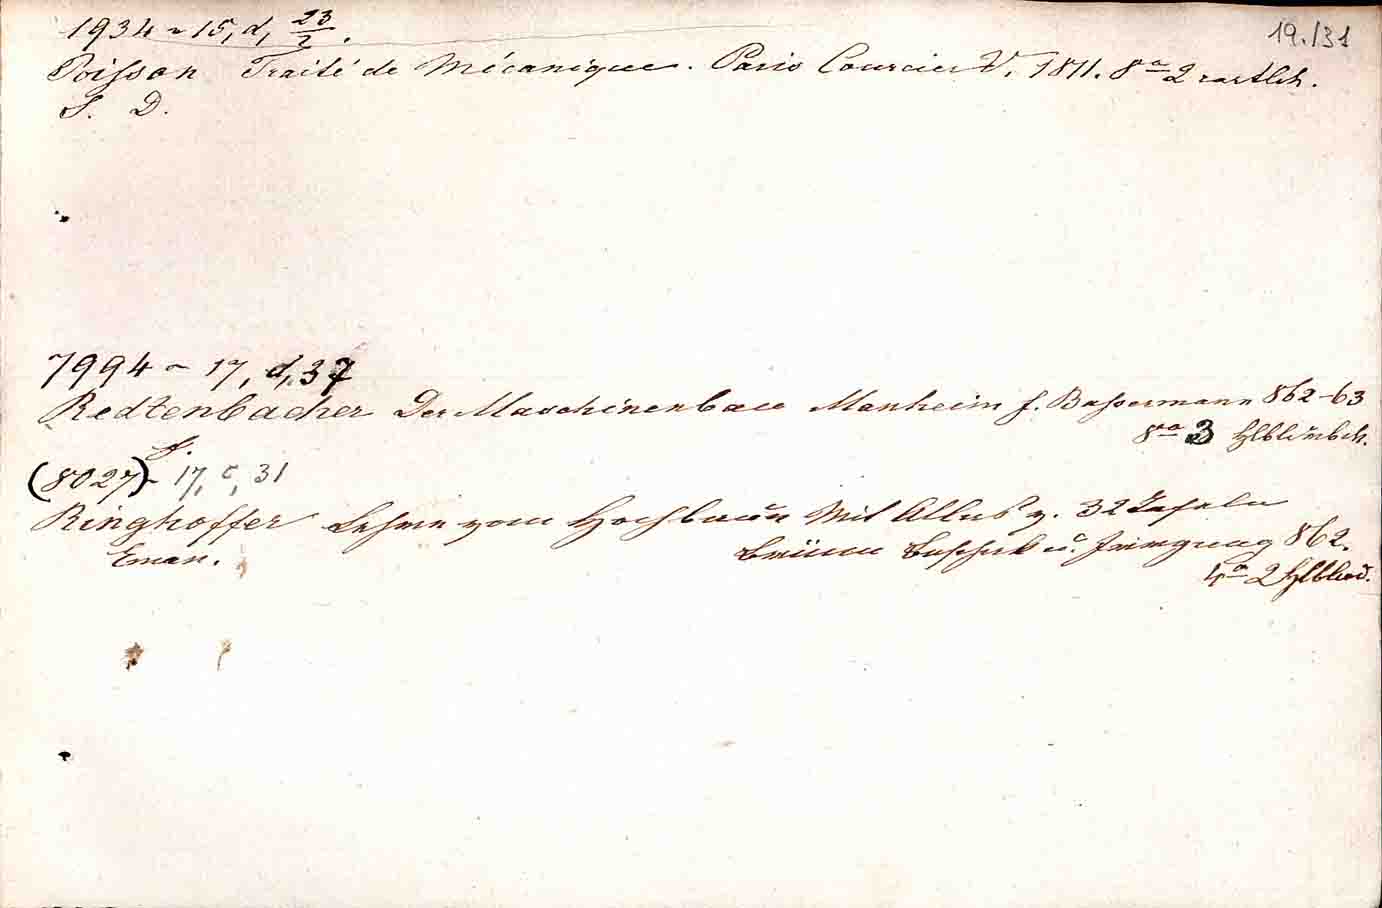 19./31
1934 ~ 15, d, 23/2.
Poisson Traité de Mécanique. Paris Courcier V. 1811. 8° 2
S. D.
7994 ~ 17, d, 37
Redtenbacher Der Maschinenbau Manheim f. Bassermann 862-63
8° 3 Hlblnwbd.
F.
(8027) ~ 17, c, 31
Ringhoffer Lehre vom Hochbau Mit Atlas v. 32 Tafeln
Eman. Brünn Buschak u. Irrgang 862.
4° 2 Hlblwd.